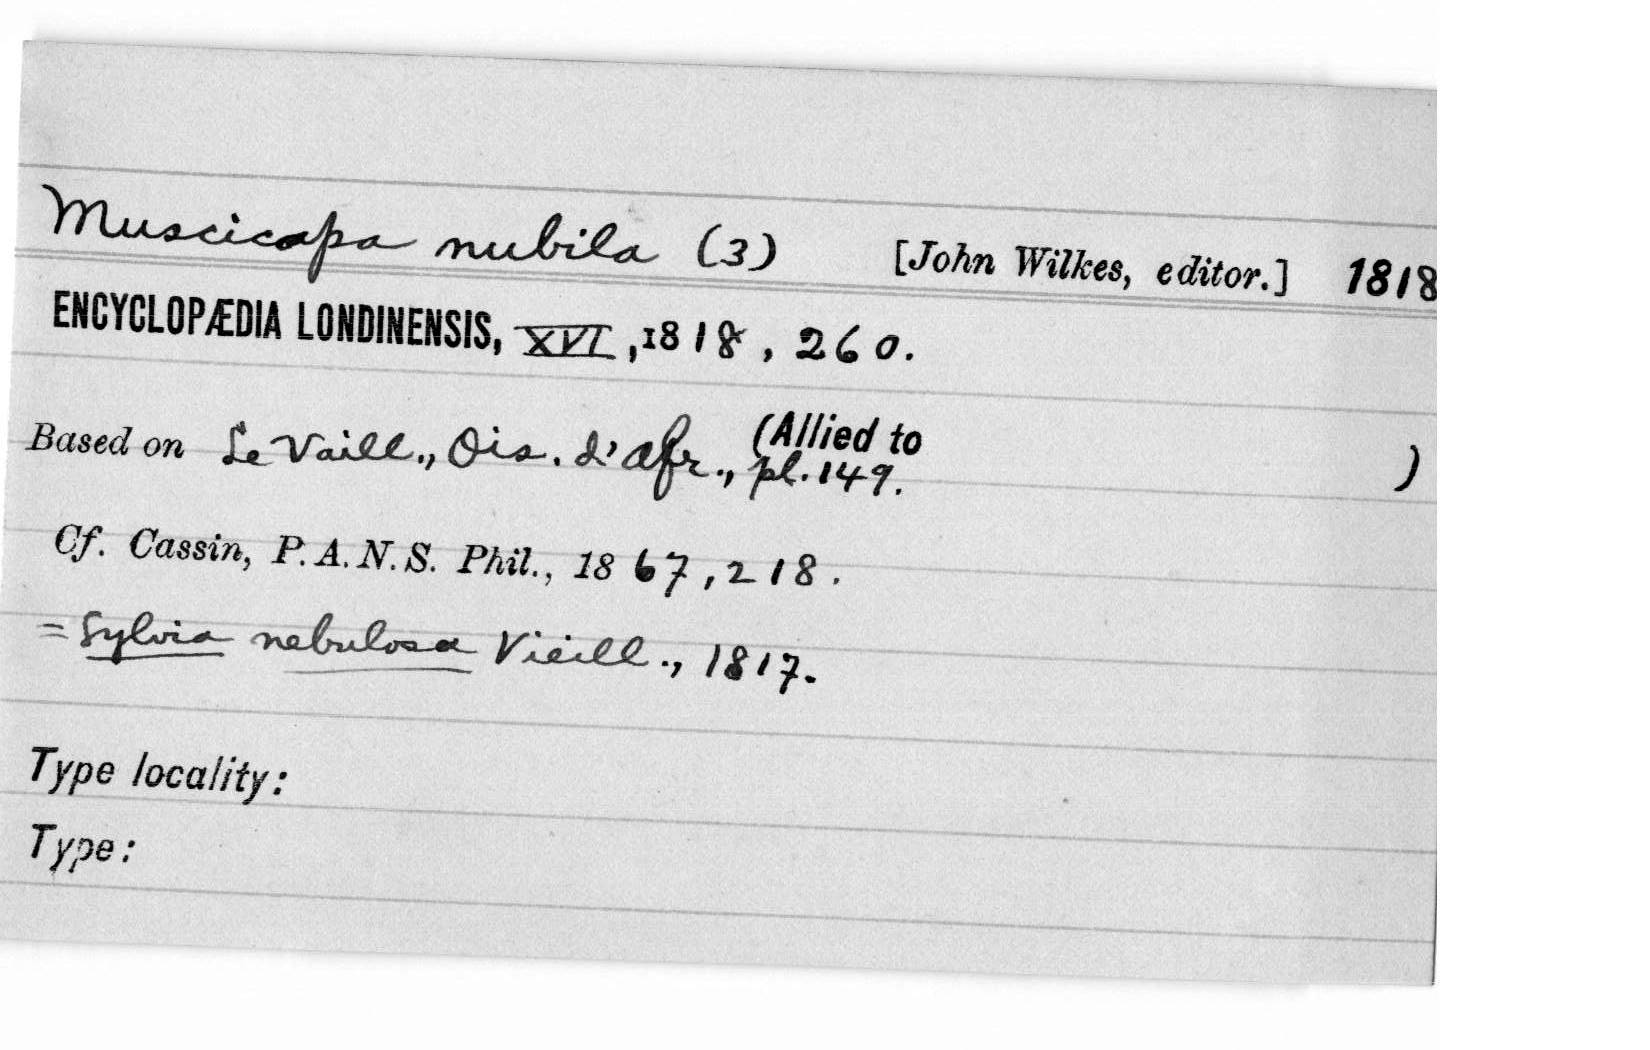 Muscicapa nubila (3) [John Wilkes, editor.] 1818
ENCYCLOPÆDIA LONDINENSIS, XVI, 1818, 260.
(Allied to )
Based on Le Vaill., Ois. d'Afr., pl. 149.
Cf. Cassin, P. A. N. S. Phil., 1867, 218.
= Sylvia nebulosa Vieill., 1817.
Type locality:
Type: